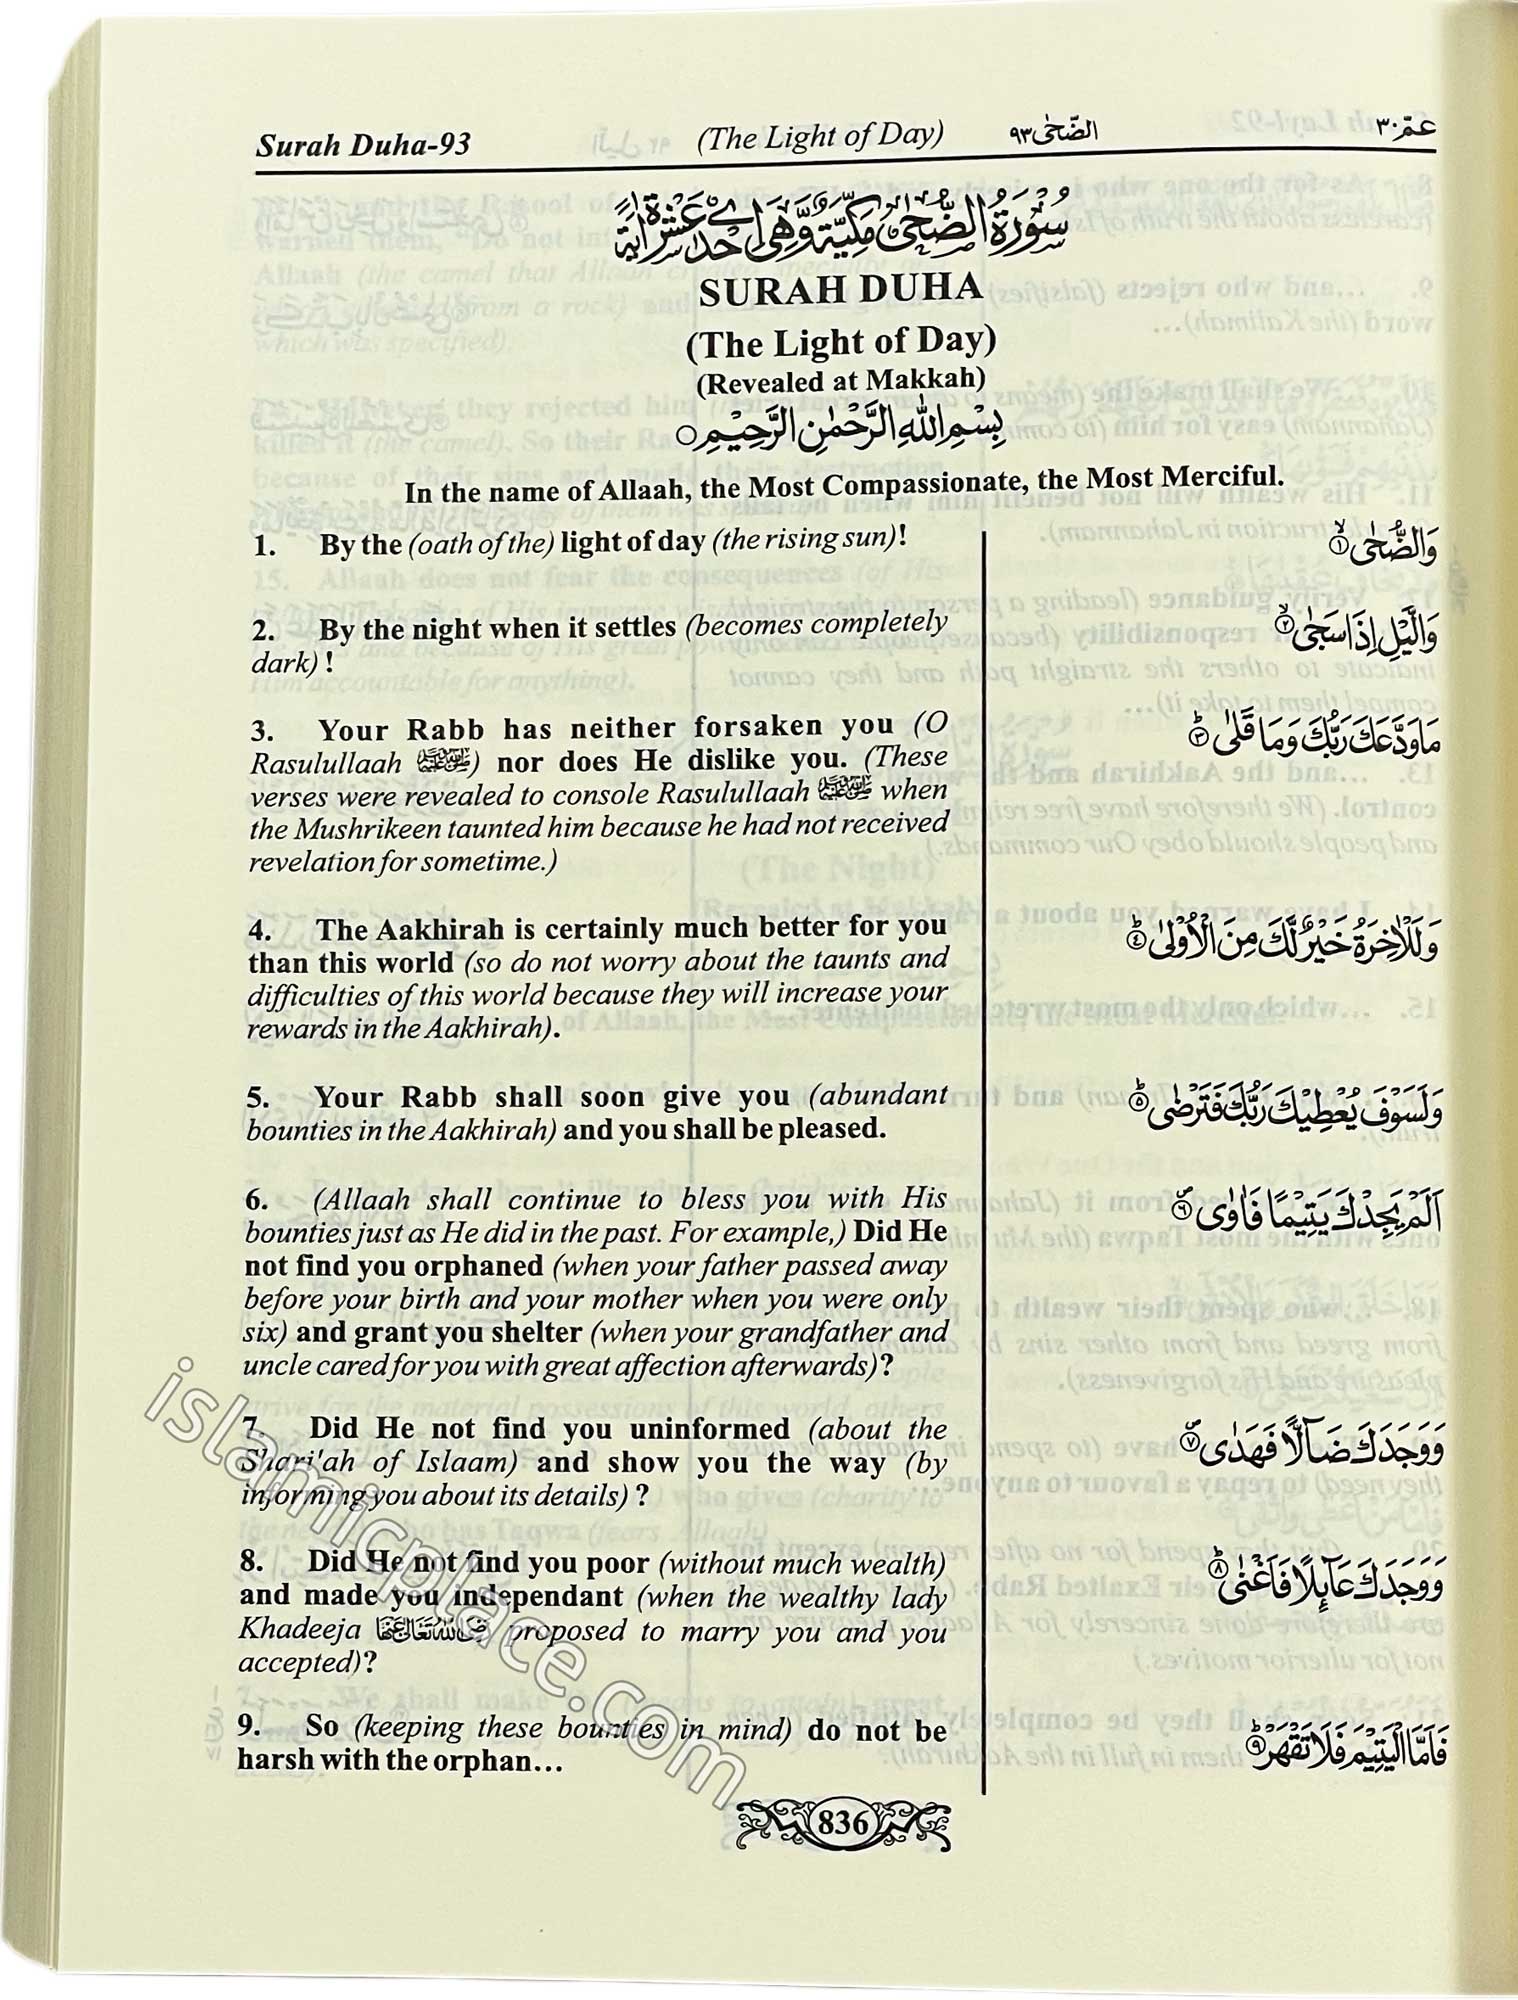 Surah Duha-93 (The Light of Day) الضّحٰى ٩٣ عمّ ٣٠
سُوْرَةُ الضُّحٰى مَكِّيَّةٌ وَّهِيَ اِحْدٰى عَشْرَةَ اٰيَةً
SURAH DUHA
(The Light of Day)
(Revealed at Makkah)
بِسْمِ اللّٰهِ الرَّحْمٰنِ الرَّحِيْمِ
In the name of Allaah, the Most Compassionate, the Most Merciful.
1. By the (oath of the) light of day (the rising sun)!
وَالضُّحٰى ١
2. By the night when it settles (becomes completely
dark) !
وَالَّيْلِ اِذَا سَجٰى ٢
3. Your Rabb has neither forsaken you (O
Rasulullaah ﷺ) nor does He dislike you. (These
verses were revealed to console Rasulullaah ﷺ when
the Mushrikeen taunted him because he had not received
revelation for sometime.)
مَا وَدَّعَكَ رَبُّكَ وَمَا قَلٰى ٣
4. The Aakhirah is certainly much better for you
than this world (so do not worry about the taunts and
difficulties of this world because they will increase your
rewards in the Aakhirah).
وَلَلْاٰخِرَةُ خَيْرٌ لَّكَ مِنَ الْاُوْلٰى ٤
5. Your Rabb shall soon give you (abundant
bounties in the Aakhirah) and you shall be pleased.
وَلَسَوْفَ يُعْطِيْكَ رَبُّكَ فَتَرْضٰى ٥
6. (Allaah shall continue to bless you with His
bounties just as He did in the past. For example,) Did He
not find you orphaned (when your father passed away
before your birth and your mother when you were only
six) and grant you shelter (when your grandfather and
uncle cared for you with great affection afterwards)?
اَلَمْ يَجِدْكَ يَتِيْمًا فَاٰوٰى ٦
7. Did He not find you uninformed (about the
Shari'ah of Islaam) and show you the way (by
informing you about its details) ?
وَوَجَدَكَ ضَآلًّا فَهَدٰى ٧
8. Did He not find you poor (without much wealth)
and made you independant (when the wealthy lady
Khadeeja رضى الله تعالى عنها proposed to marry you and you
accepted)?
وَوَجَدَكَ عَآىِٕلًا فَاَغْنٰى ٨
9. So (keeping these bounties in mind) do not be
harsh with the orphan…
فَاَمَّا الْيَتِيْمَ فَلَا تَقْهَرْ ٩
836
islamicplace.com